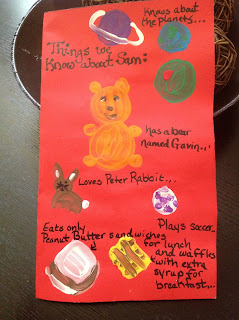 Knows about
the planets...
Things we
Know about Sam:
has a bear
named Gavin...
Loves Peter Rabbit...
Plays soccer...
Eats only
Peanut Butter sandwiches
for lunch
and waffles
with extra
syrup for
breakfast...